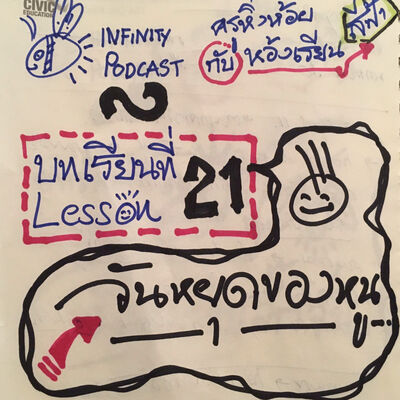 CIVIC
EDUCATION
INFINITY
PODCAST
ครูหิ่งห้อย
กับ ห้องเรียน
สีฟ้า
บทเรียนที่
Lesson 21
วันหยุดของหนู...